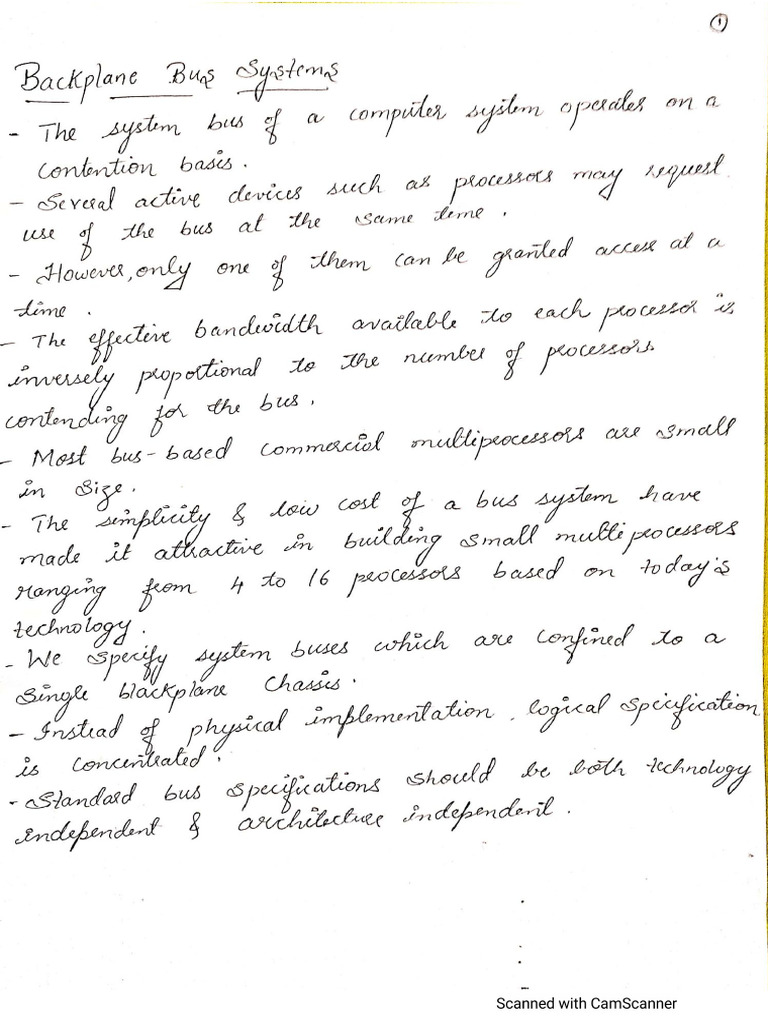 1
Backplane Bus Systems
- The system bus of a computer system operates on a
contention basis.
- Several active devices such as processors may request
use of the bus at the same time.
- However, only one of them can be granted access at a
time.
- The effective bandwidth available to each processor is
inversely proportional to the number of processors
contending for the bus.
- Most bus-based commercial multiprocessors are small
in size.
- The simplicity & low cost of a bus system have
made it attractive in building small multiprocessors
ranging from 4 to 16 processors based on today's
technology.
- We specify system buses which are confined to a
single blackplane chassis.
- Instead of physical implementation, logical specification
is concentrated.
- Standard bus specifications should be both technology
independent & architecture independent.
Scanned with CamScanner